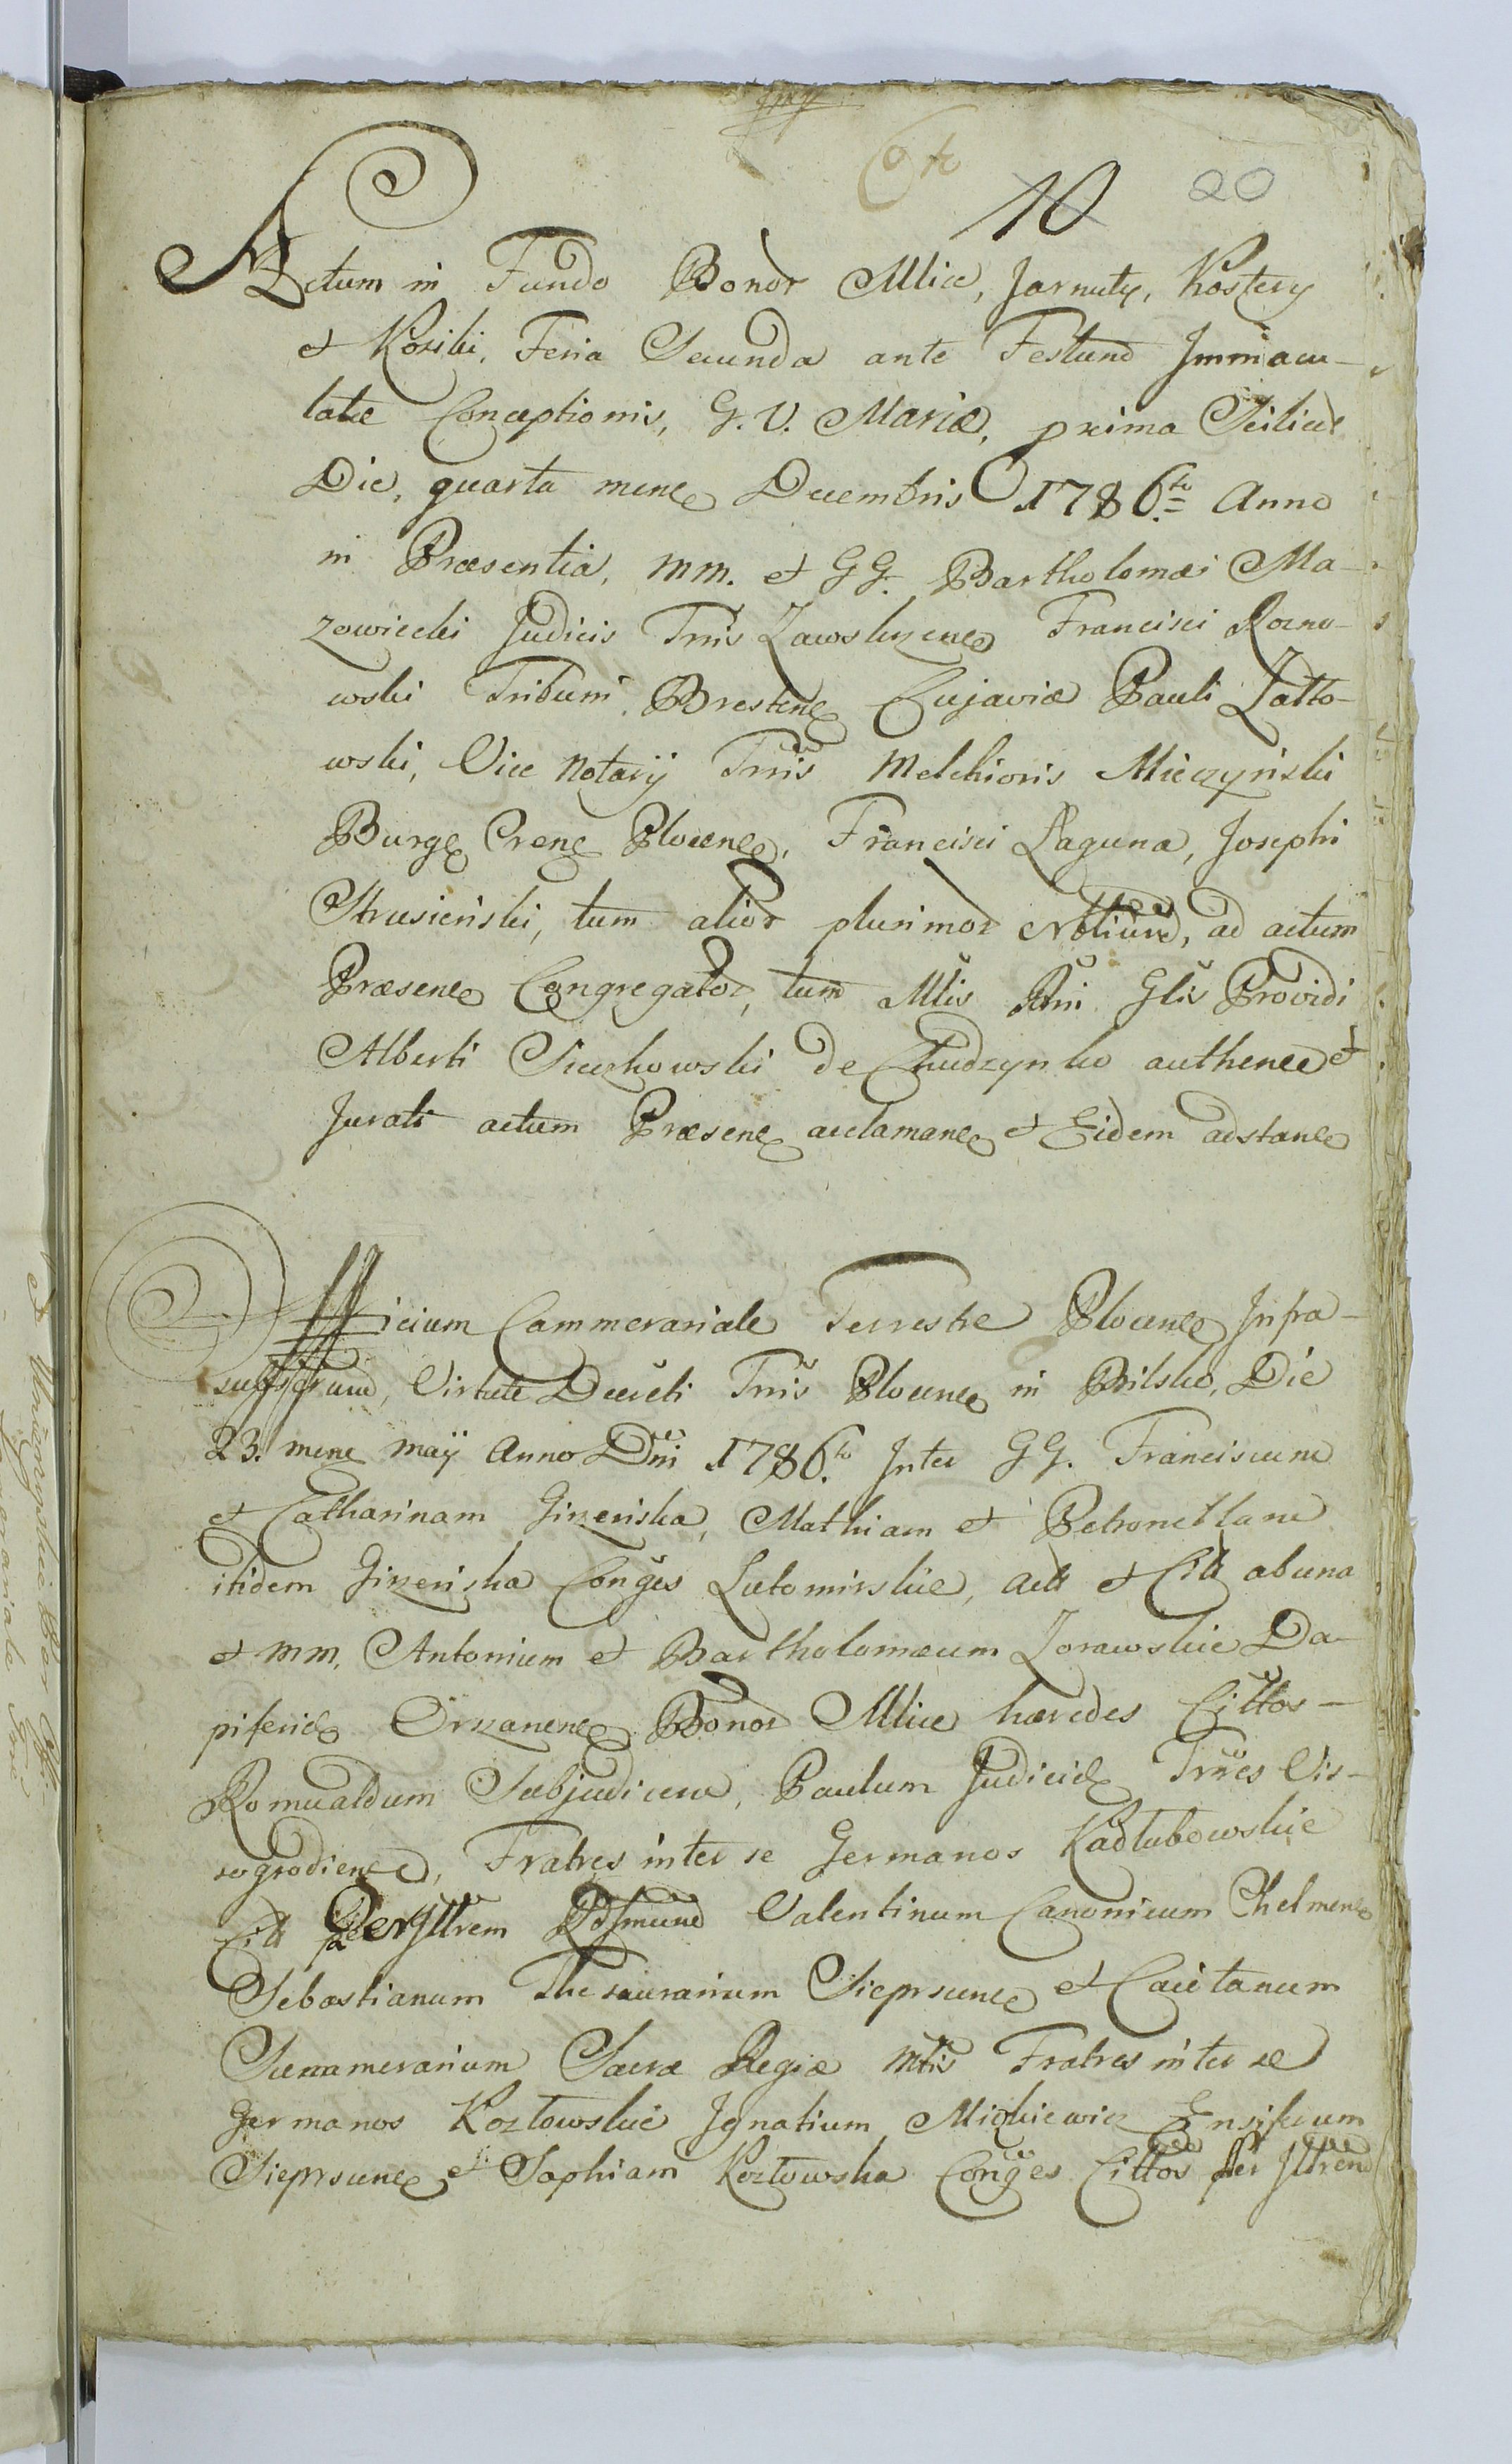 10 20
Actum in Fundo Bonor Mlice, Jarnuty, Kostery
et Kosiki, Feria Secunda ante Festum Immacu-
latæ Conceptionis, G. V. Mariæ, prima Scilicet
Die, quarta mene Decembris 1786.to Anno
in Præsentia, MM. et GG. Bartholomæi Ma-
zowiecki Judicis Trris Zawskrzene Francisci Rocno-
wski Tribuni Brestene Cujaviæ Pauli Zatto-
wski, Vice Notarij Trris Melchioris Mieczyński
Burge Crene Plocene, Francisci Laguna, Josephi
Strusieński, tum alior plurimor Nbtium, ad actum
Præsene Congregator, tum Mlis Rni Glis Providi
Alberti Sieczkowski de Chudzynko authene et
Jurati actum Præsene acclamane et Eidem adstane
Officium Cammerariale Terrestre Plocene Infra-
suptum, Virtute Decreti Trris Plocene in Bilsko, Die
23. mene maij Anno Dni 1786.to Inter GG. Franciscum
et Catharinam Giżeriska, Mathiam et Petronellam
itidem Giżeriska Conges Lutomirskie, act et Citt abuna
et MM. Antonium et Bartholomæum Zorawskie Da-
piferid Orzanene Bonor Mlice hæredes Cittos-
Romualdum Subjudicem, Paulum Judicid Trres Vis-
sogrodiene, Fratres inter se Germanos Kadłubowskie
Citt Per Illrem Rdsmum Valentinum Canonicum Chelmene
Sebastianum Thesaurarium Sieprscene et Caietanum
Succamerarium Sacræ Regiæ Mtis Fratres inter se
Germanos Kozłowskie Ignatium Mickiewicz Ensiferum
Sieprscene et Sophiam Kozłowska Conges Cittos Per Illrem